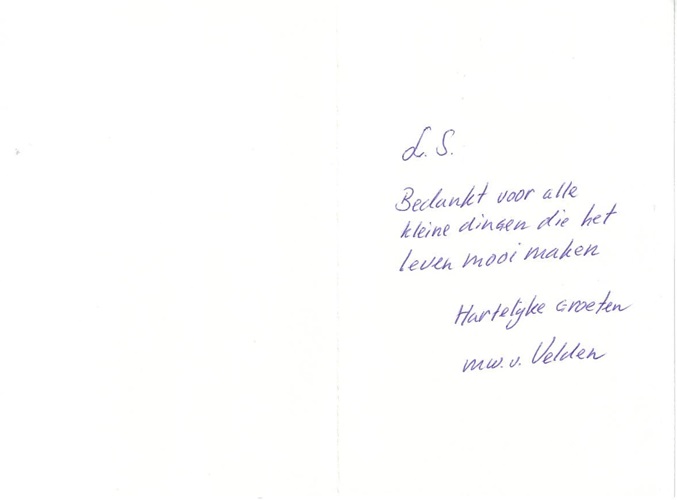 L.S.
Bedankt voor alle
kleine dingen die het
leven mooi maken
Hartelijke Groeten
mw. v. Velden